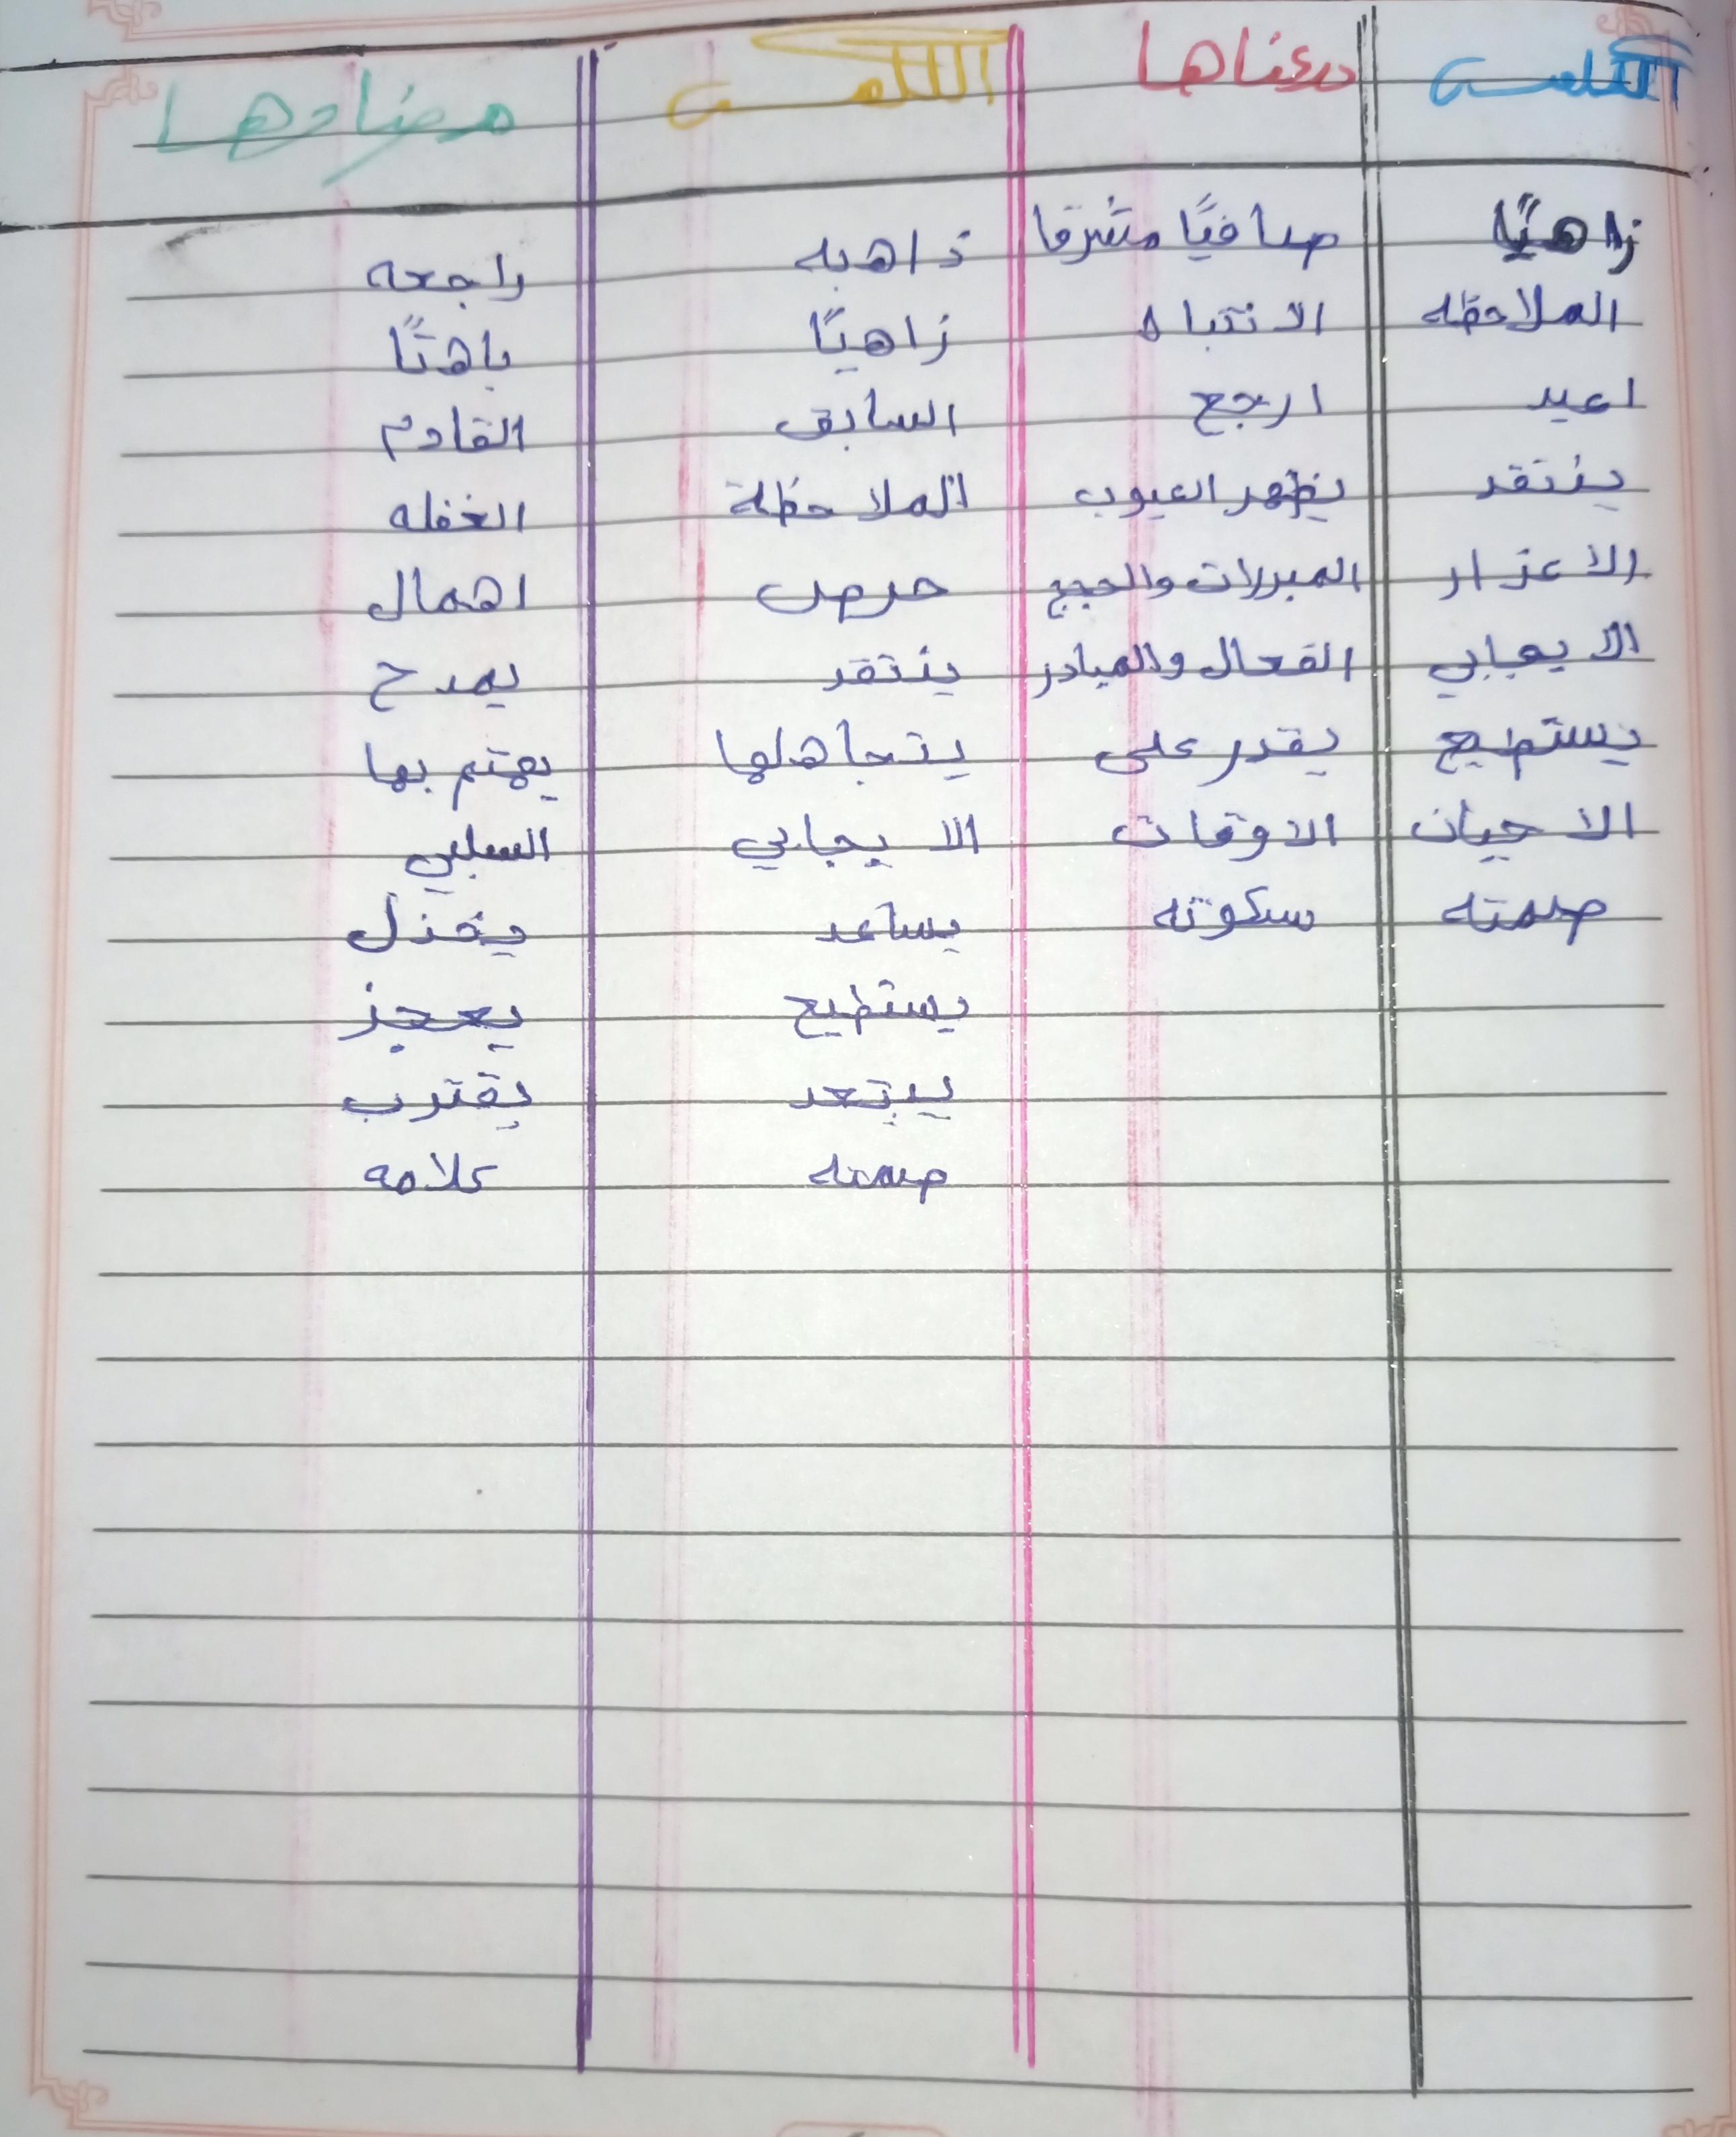 الكلمة معناها الكلمة مضادها
زاهيًا صافيًا مشرقا ذاهبه راجعه
الملاحظه الانتباه زاهيًا باهتًا
اعيد ارجع السابق القادم
ينتقد يظهر العيوب الملاحظة الغفله
الاعذار المبررات والحجج حرص اهمال
الايجابي الفعال والمبادر ينتقد يمدح
يستطيع يقدر على يتجاهلها يهتم بها
الاحيان الاوقات الايجابي السلبي
صمته سكوته يساعد يخذل
يستطيع يعجز
يبتعد يقترب
صمته كلامه